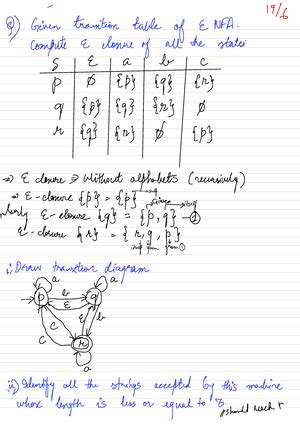 19/6
Q) Given transition table of ε NFA.
Compute ε closure of all the states
δ ε a b c
p ∅ {p} {q} {r}
q {p} {q} {r} ∅
r {q} {r} ∅ {p}
⇒ ε closure ⇒ without alphabets (recursively)
⇒ ε-closure {p} = {p}
ε-closure {q} = {p, q}
ε-closure {r} = {r, q, p}
i) Draw transition diagram
a a
p b q
ε
C C ε b
r
a
ii) Identify all the strings accepted by this machine
whose length is less or equal to 3.
p should reach r